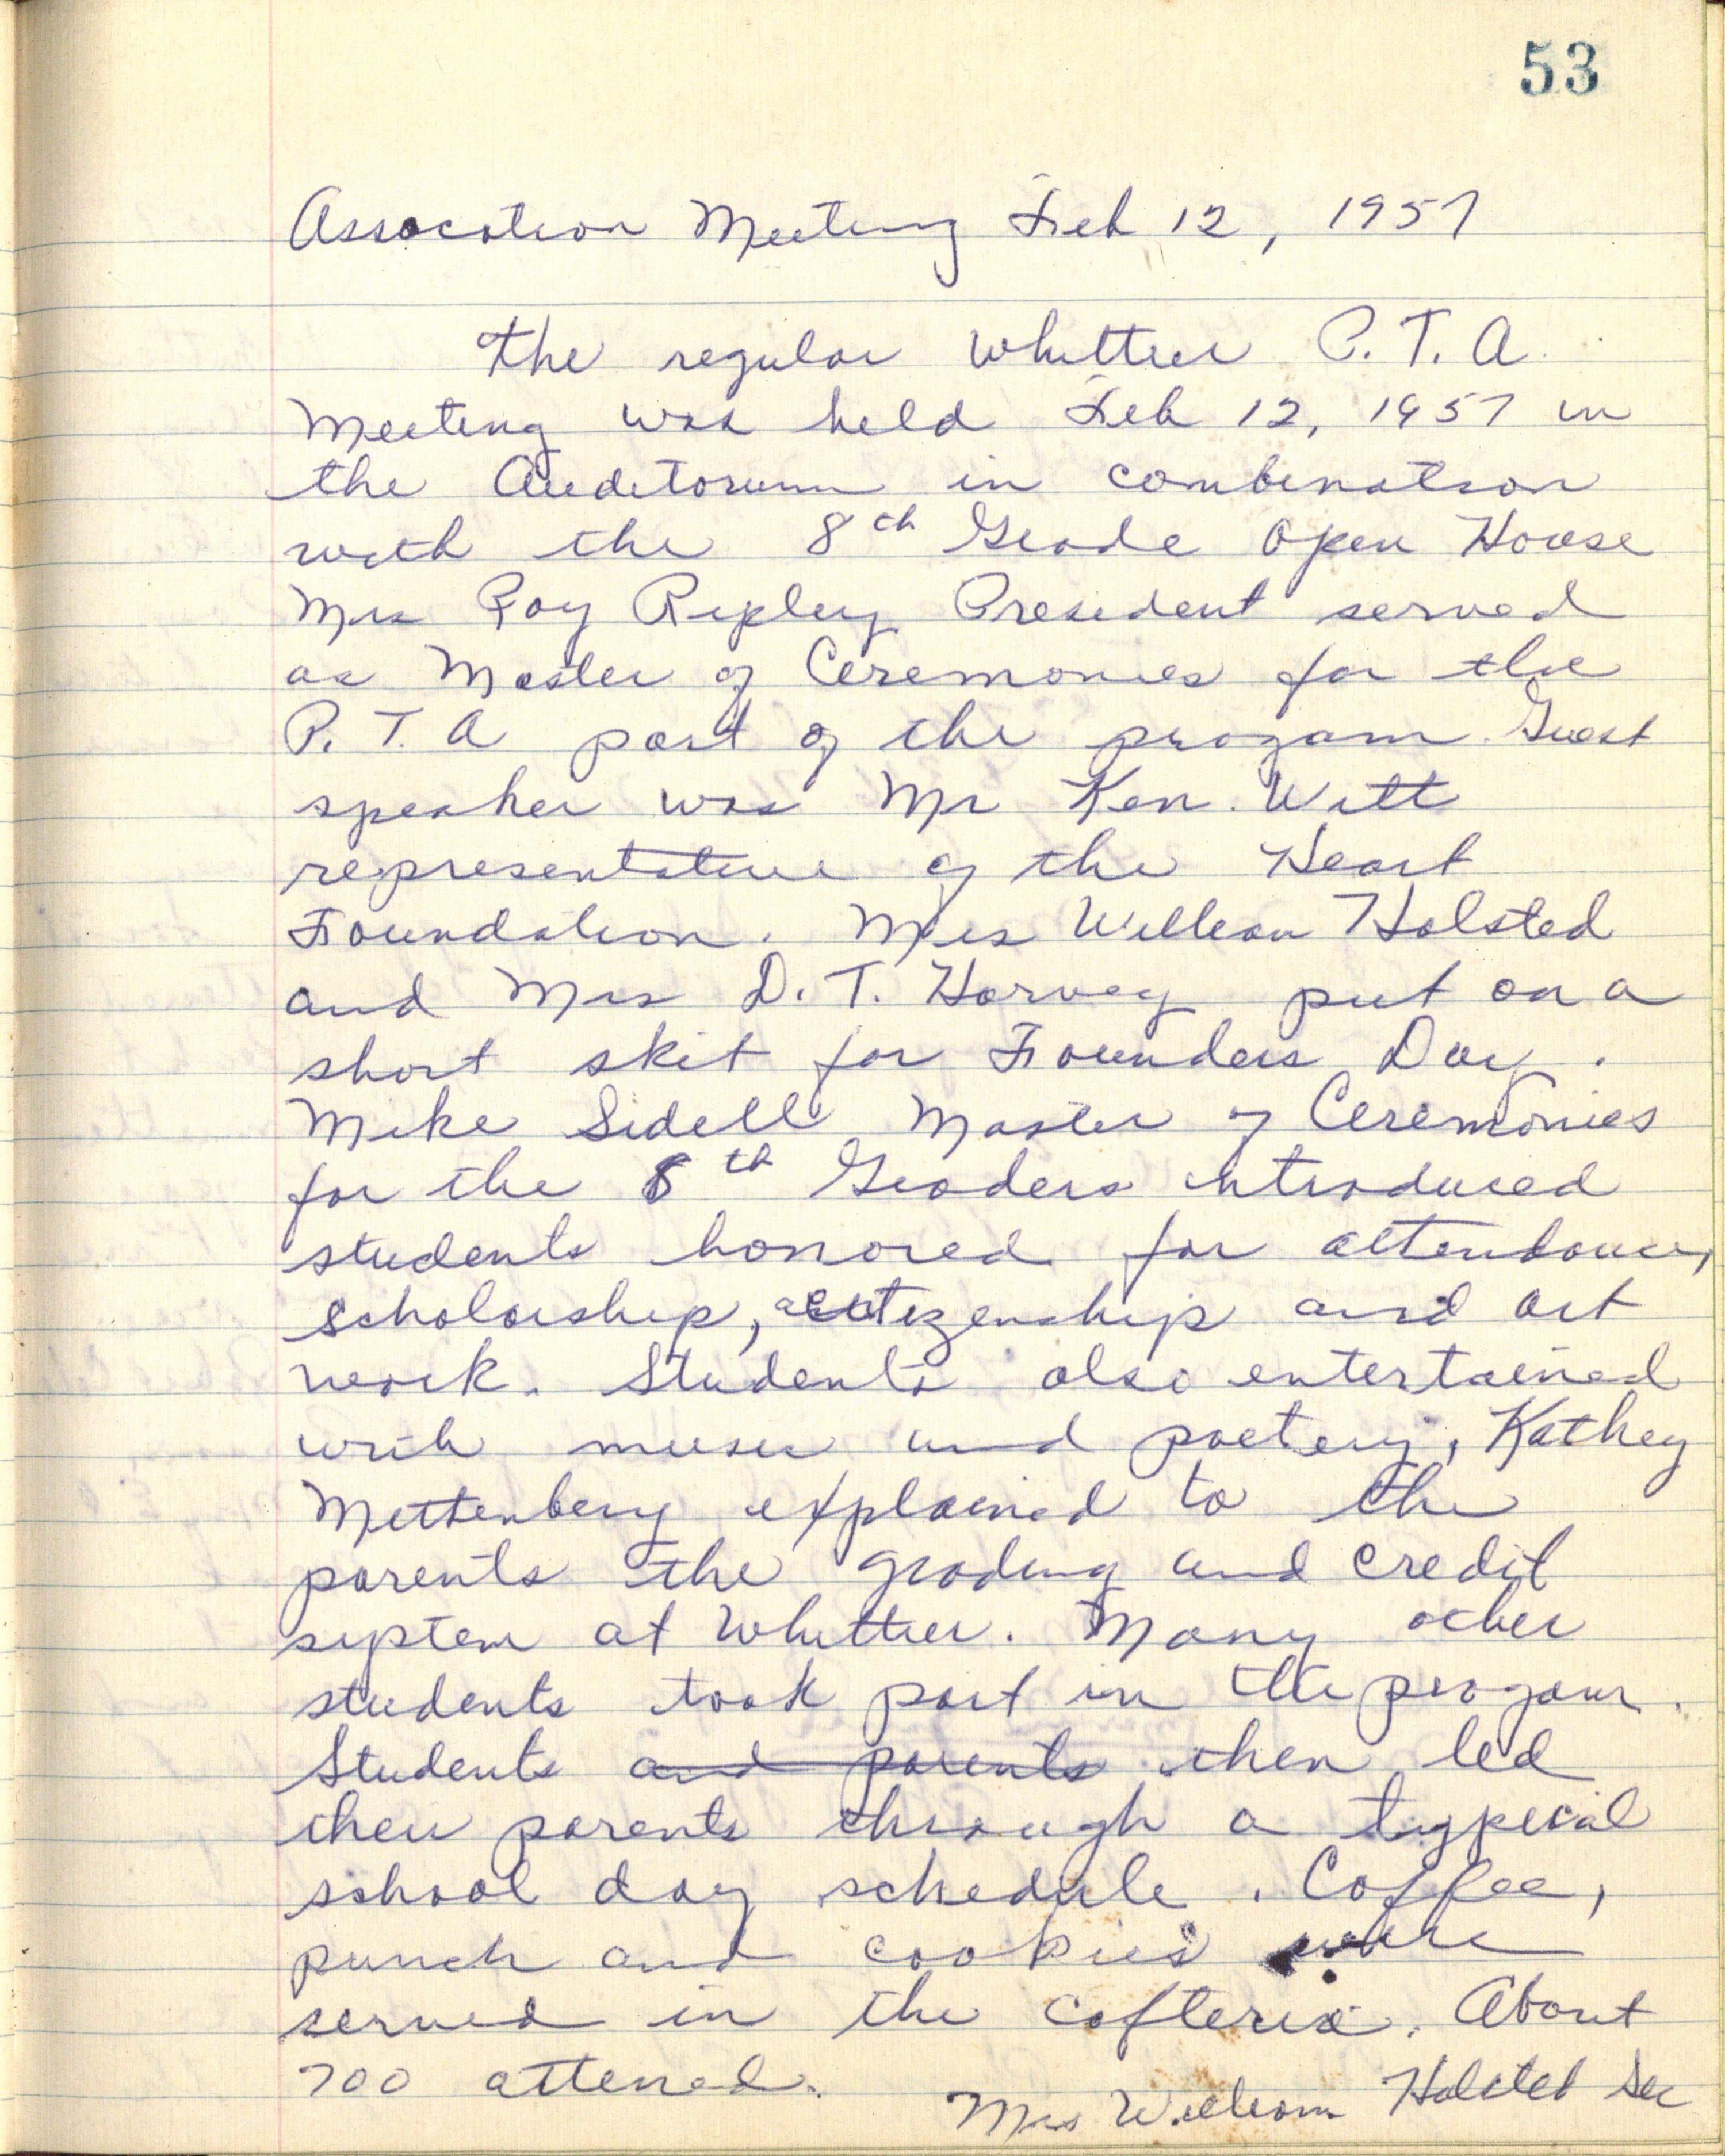 53
Assocation Meeting Feb 12, 1957
The regular Whittier P.T.A.
Meeting was held Feb 12, 1957 in
the Auditorium in combination
with the 8th Grade Open House
Mrs Roy Ripley President served
as Master of Ceremonies for the
P.T.A part of the progam. Guest
speaker was Mr Ken. Witt
representative of the Heart
Foundation. Mrs William Halsted
and Mrs D.T. Harvey put on a
short skit for Founders Day.
Mike Sidell Master of Ceremonies
for the 8th Graders introduced
students honored for attendance,
scholarship, citizenship and art
work. Students also entertained
with music and poetery, Kathey
Mettenberg explained to the
parents the grading and credit
system at Whittier. Many other
students took part in the progam.
Students and parents then led
their parents through a typical
school day schedule. Coffee,
punch and cookies were
served in the cafteria. About
700 attened.
Mrs William Halsted Sec